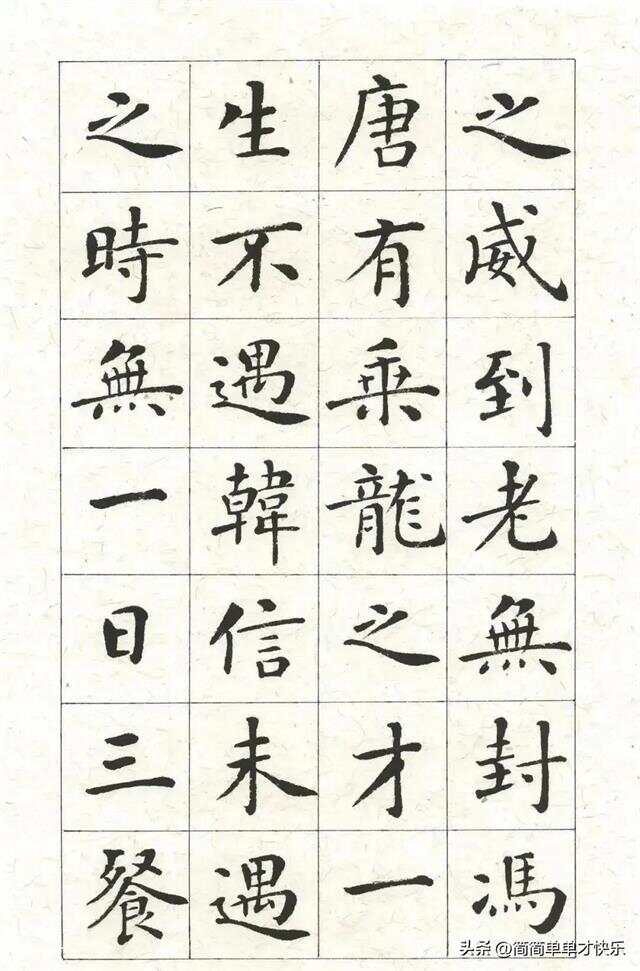 之威到老無封馮
唐有乗龍之才一
生不遇韓信未遇
之時無一日三餐
头条 @简简单单才快乐